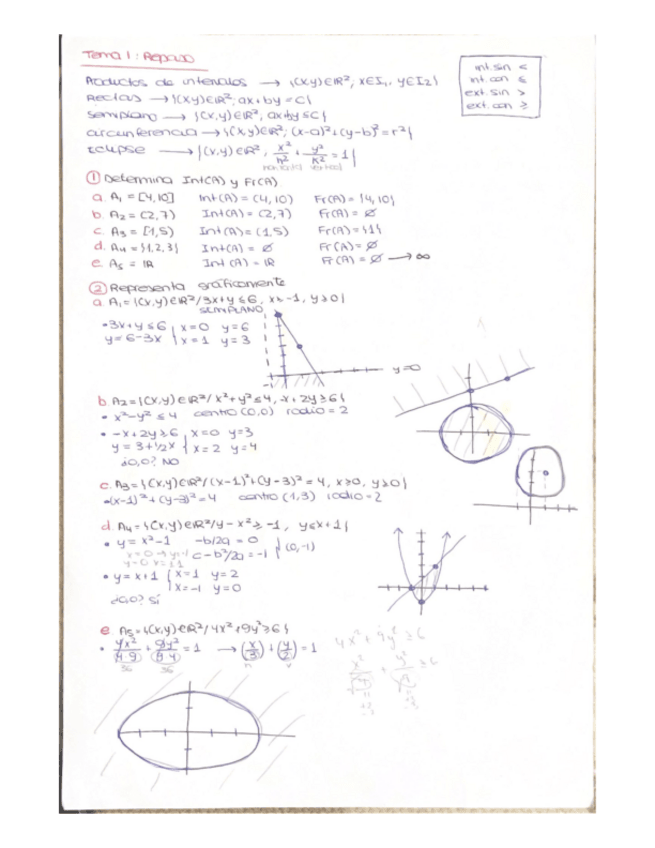 Tema 1: Repaso
int. sin <
int. con ≤
ext. sin >
ext. con ≥
Productos de intervalos → {(x,y)∈ℝ², x∈I₁, y∈I₂}
Rectas → {(x,y)∈ℝ²; ax+by=c}
Semiplano → {(x,y)∈ℝ², ax+by≤c}
circunferencia → {(x,y)∈ℝ²; (x-a)²+(y-b)²=r²}
Eclipse → {(x,y)∈ℝ², x²/h² + y²/k² = 1}
horizontal vertical
① Determina Int(A) y Fr(A)
a. A₁ = [4,10] Int(A) = (4,10) Fr(A) = {4,10}
b. A₂ = (2,7) Int(A) = (2,7) Fr(A) = ∅
c. A₃ = [1,5) Int(A) = (1,5) Fr(A) = {1}
d. A₄ = {1,2,3} Int(A) = ∅ Fr(A) = ∅
e. A₅ = ℝ Int(A) = ℝ Fr(A) = ∅ → ∞
② Representa gráficamente
a. A₁ = {(x,y)∈ℝ²/3x+y≤6, x≥-1, y≥0}
SEMIPLANO
• 3x+y≤6 x=0 y=6
y=6-3x x=1 y=3
-1
y=0
b. A₂ = {(x,y)∈ℝ²/ x²+y²≤4, -x+2y≥6}
• x²-y²≤4 centro (0,0) radio=2
• -x+2y≥6 x=0 y=3
y=3+1/2x x=2 y=4
¿0,0? NO
c. A₃ = {(x,y)∈ℝ²/(x-1)²+(y-3)²=4, x≥0, y≥0}
• (x-1)²+(y-3)²=4 centro (1,3) radio=2
d. A₄ = {(x,y)∈ℝ²/y-x²≥-1, y≤x+1}
• y=x²-1 -b/2a=0
c-b²/2a=-1 (0,-1)
• y=x+1 x=1 y=2
x=-1 y=0
¿0,0? Sí
e. A₅ = {(x,y)∈ℝ²/4x²+9y²≥6}
• 4x²/4·9 + 9y²/9·4 = 1 → (x/3)+(y/2)=1
36 36 h v
4x²+9y²≥6